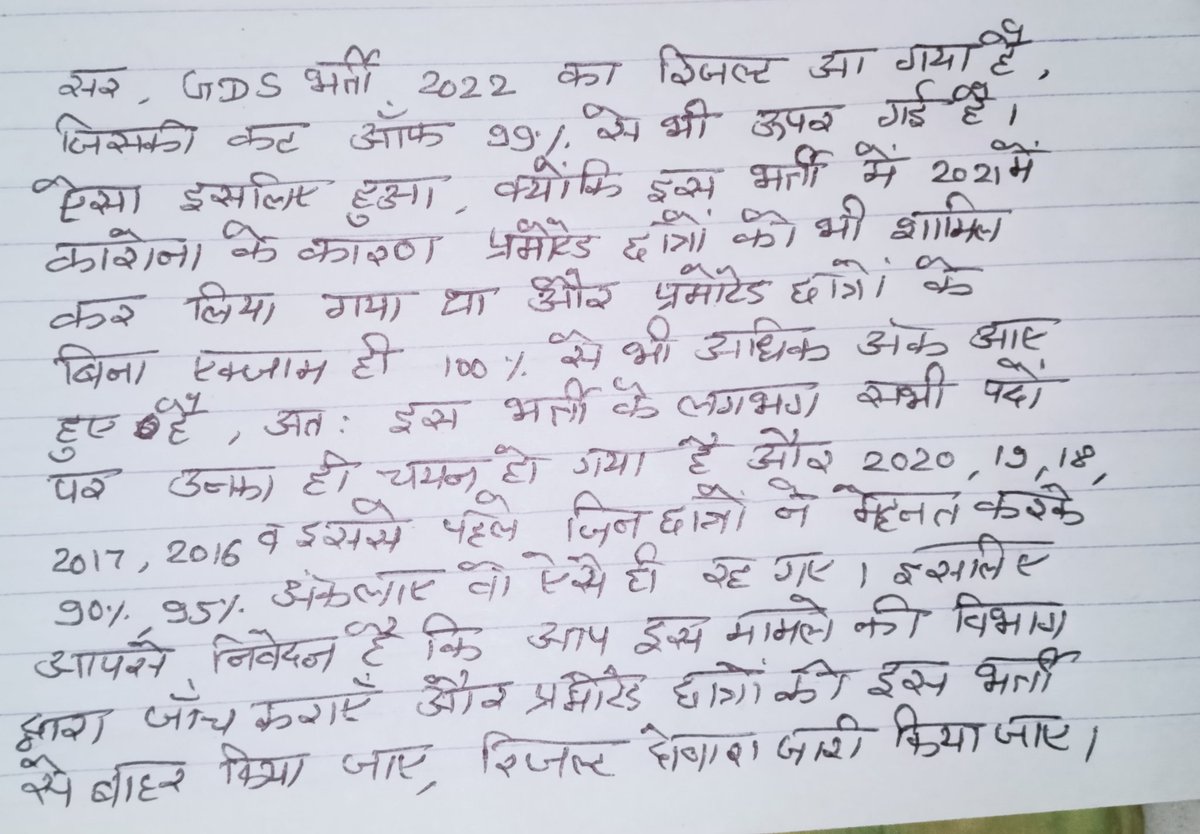 सर, GDS भर्ती, 2022 का रिजल्ट आ गया है,
जिसकी कट ऑफ 99% से भी ऊपर गई है।
ऐसा इसलिए हुआ, क्योंकि इस भर्ती में 2021 में
कारोना के कारण प्रमोटेड छात्रों को भी शामिल
कर लिया गया था और प्रमोटेड छात्रों के
बिना एक्जाम ही 100% से भी अधिक अंक आए
हुए है, अत: इस भर्ती के लगभग सभी पदों
पर उनका ही चयन हो गया है और 2020, 19, 18,
2017, 2016 व इससे पहले जिन छात्रों ने मेहनत करके
90%, 95% अंक लाए वो ऐसे ही रह गए। इसलिए
आपसे निवेदन है कि आप इस मामले की विभाग
द्वारा जाँच कराएँ और प्रमोटेड छात्रों को इस भर्ती
से बाहर किया जाए, रिजल्ट दोबारा जारी किया जाए।